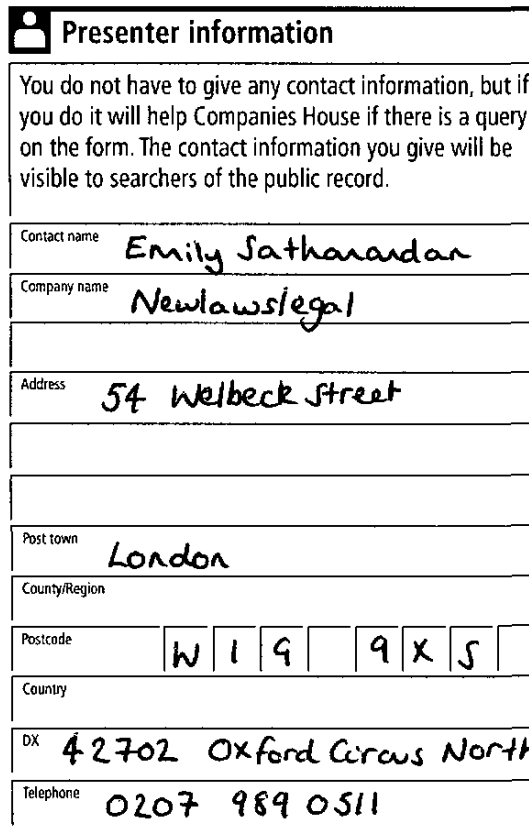 Presenter information
You do not have to give any contact information, but if
you do it will help Companies House if there is a query
on the form. The contact information you give will be
visible to searchers of the public record.
Contact name Emily Sathanandan
Company name Newlawslegal
Address 54 Welbeck Street
Post town London
County/Region
Postcode W1G 9XS
Country
DX 42702 Oxford Circus North
Telephone 0207 989 0511